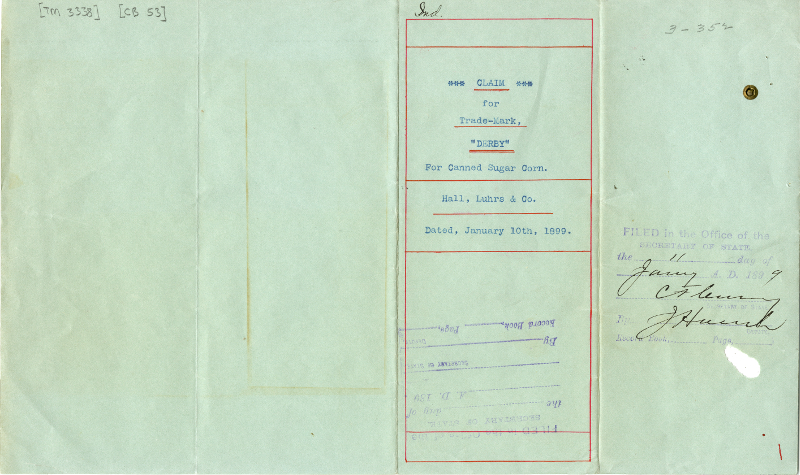 [TM 3338] [CB 53]
Ind.
3-352
*** CLAIM ***
for
Trade-Mark,
"DERBY"
For Canned Sugar Corn.
Hall, Luhrs & Co.
Dated, January 10th, 1899.
FILED in the Office of the
SECRETARY OF STATE
the 11 day of
Jany A. D. 1899
Record Book, Page,
FILED in the Office of the
SECRETARY OF STATE
the day of
A. D. 189
SECRETARY OF STATE
By
Record Book, Page,